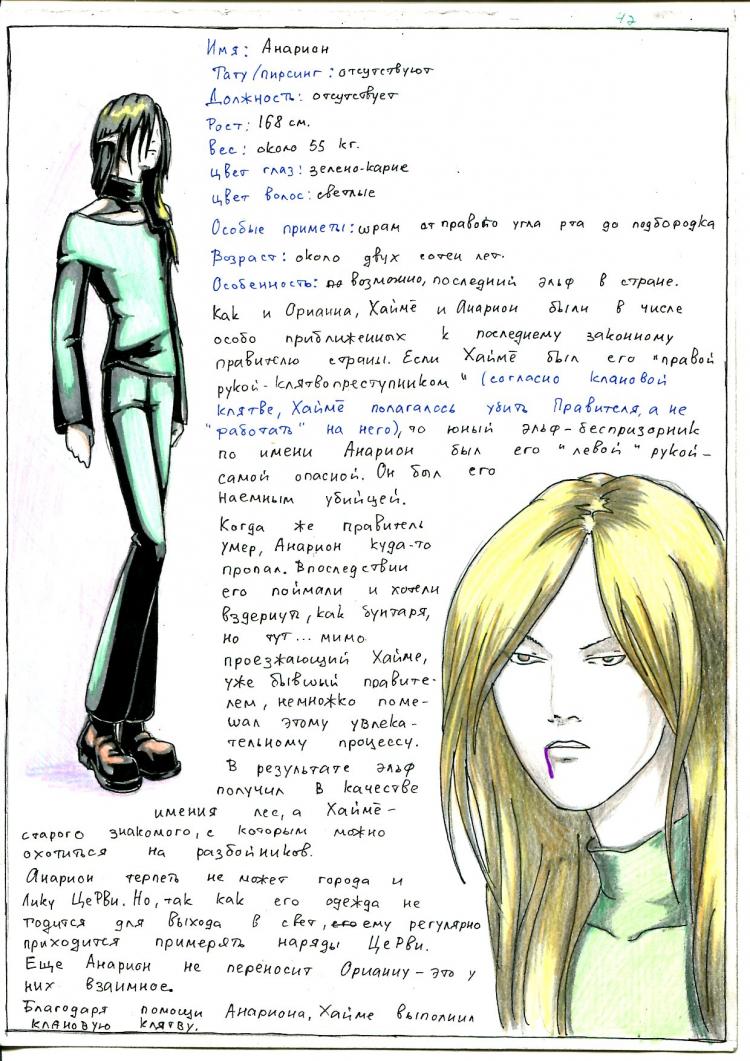 42
Имя: Анарион
Тату/пирсинг: отсутствуют
Должность: отсутствует
Рост: 168 см.
Вес: около 55 кг.
цвет глаз: зелено-карие
цвет волос: светлые
Особые приметы: шрам от правого угла рта до подбородка
Возраст: около двух сотен лет.
Особенность: возможно, последний эльф в стране.
Как и Орианна, Хаймё и Анарион были в числе
особо приближенных к последнему законному
правителю страны. Если Хаймё был его "правой
рукой-клятвопреступником" (согласно клановой
клятве, Хаймё полагалось убить Правителя, а не
"работать" на него), то юный эльф-беспризорник
по имени Анарион был его "левой" рукой-
самой опасной. Он был его
наемным убийцей.
Когда же правитель
умер, Анарион куда-то
пропал. Впоследствии
его поймали и хотели
вздернуть, как бунтаря,
но тут... мимо
проезжающий Хайме,
уже бывший правите-
лем, немножко поме-
шал этому увлека-
тельному процессу.
В результате эльф
получил в качестве
имения лес, а Хаймё-
старого знакомого, с которым можно
охотиться на разбойников.
Анарион терпеть не может города и
Лику ЦеРви. Но, так как его одежда не
годится для выхода в свет, ему регулярно
приходится примерять наряды ЦеРви.
Еще Анарион не переносит Орианну - это у
них взаимное.
Благодаря помощи Анариона, Хайме выполнил
клановую клятву.